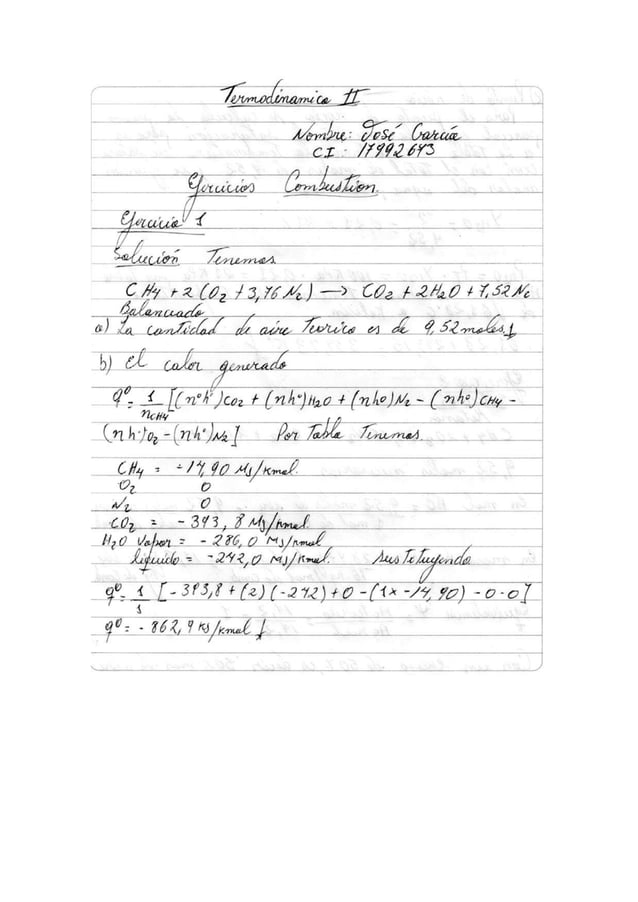 Termodinamica II
Nombre: José García
CI: 17992673
Ejercicios Combustion.
Ejercicio 1
Solución Tenemos
CH4 + 2(O2 + 3,76 N2) → CO2 + 2H2O + 7,52 N2
Balanceado
a) La cantidad de aire Teorico es de 9,52 moles
b) El calor generado
q° = 1/nCH4 [(n°h°)CO2 + (nh°)H2O + (nho)N2 - (nho)CH4 -
(nh°)O2 - (nh°)N2] Por Tabla Tenemos
CH4 = -14,90 MJ/kmol.
O2 0
N2 0
CO2 = -393,8 MJ/kmol
H2O Vapor = -286,0 MJ/kmol
liquido = -242,0 MJ/kmol. sustetuyendo
q° = 1/1 [-393,8 + (2)(-242) + 0 - (1x -14,90) - 0 - 0]
q° = -862,9 KJ/kmol